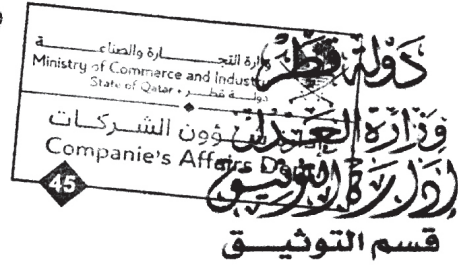 وزارة التجـــــــارة والصناعـــــــة
Ministry of Commerce and Industry
State of Qatar • دولـــة قطـــر
إدارة شـــؤون الشـــركـات
Companie's Affairs Dept
45
دولة قطر
وزارة العدل
إدارة التوثيق
قسم التوثيـــق